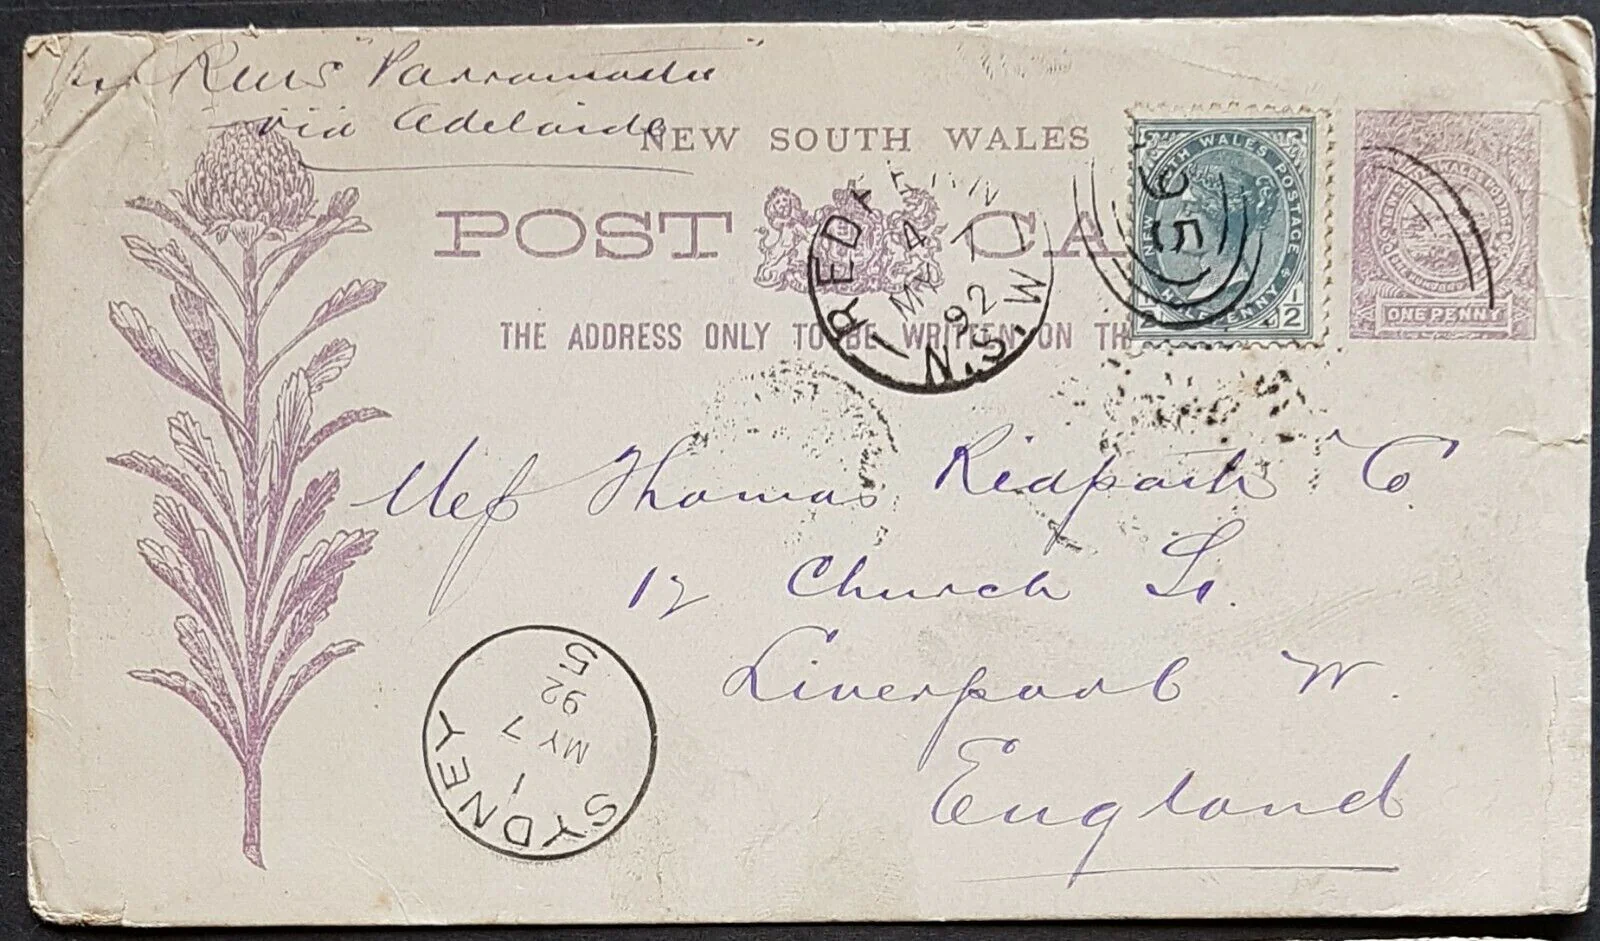 per RMS "Parramatta"
via Adelaide
NEW SOUTH WALES
POST CA
THE ADDRESS ONLY TO BE WRITTEN ON TH
NEW SOUTH WALES POSTAGE
HALFPENNY
1/2 1/2
ONE PENNY
95
REDFERN
4
MY 7
92
N.S.W
Mess Thomas Ridpath & Co
12 Church St.
Liverpool W.
England
SYDNEY
1
MY 7
92
5